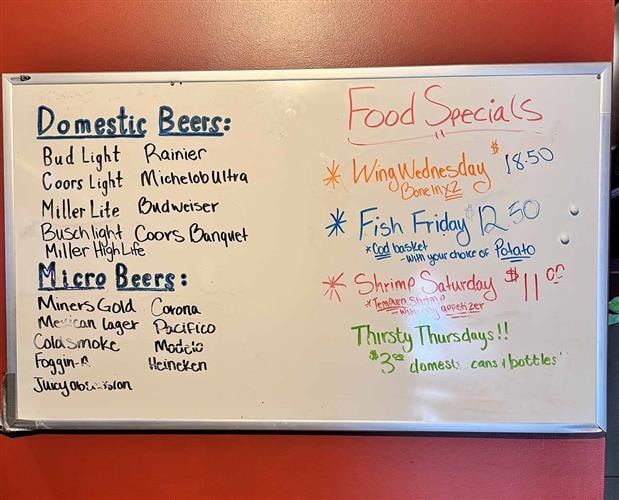 Domestic Beers:
Bud Light Rainier
Coors Light Michelob Ultra
Miller Lite Budweiser
Busch light Coors Banquet
Miller High Life
Micro Beers:
Miners Gold Corona
Mexican lager Pacifico
Coldsmoke Modelo
Heineken
Food Specials
Wing Wednesday $18.50
Bone in x2
Fish Friday $12.50
*Cod basket
-with your choice of Potato
Shrimp Saturday $11.00
shrimp
-with any appetizer
Thirsty Thursdays!!
$3.00 cans & bottles